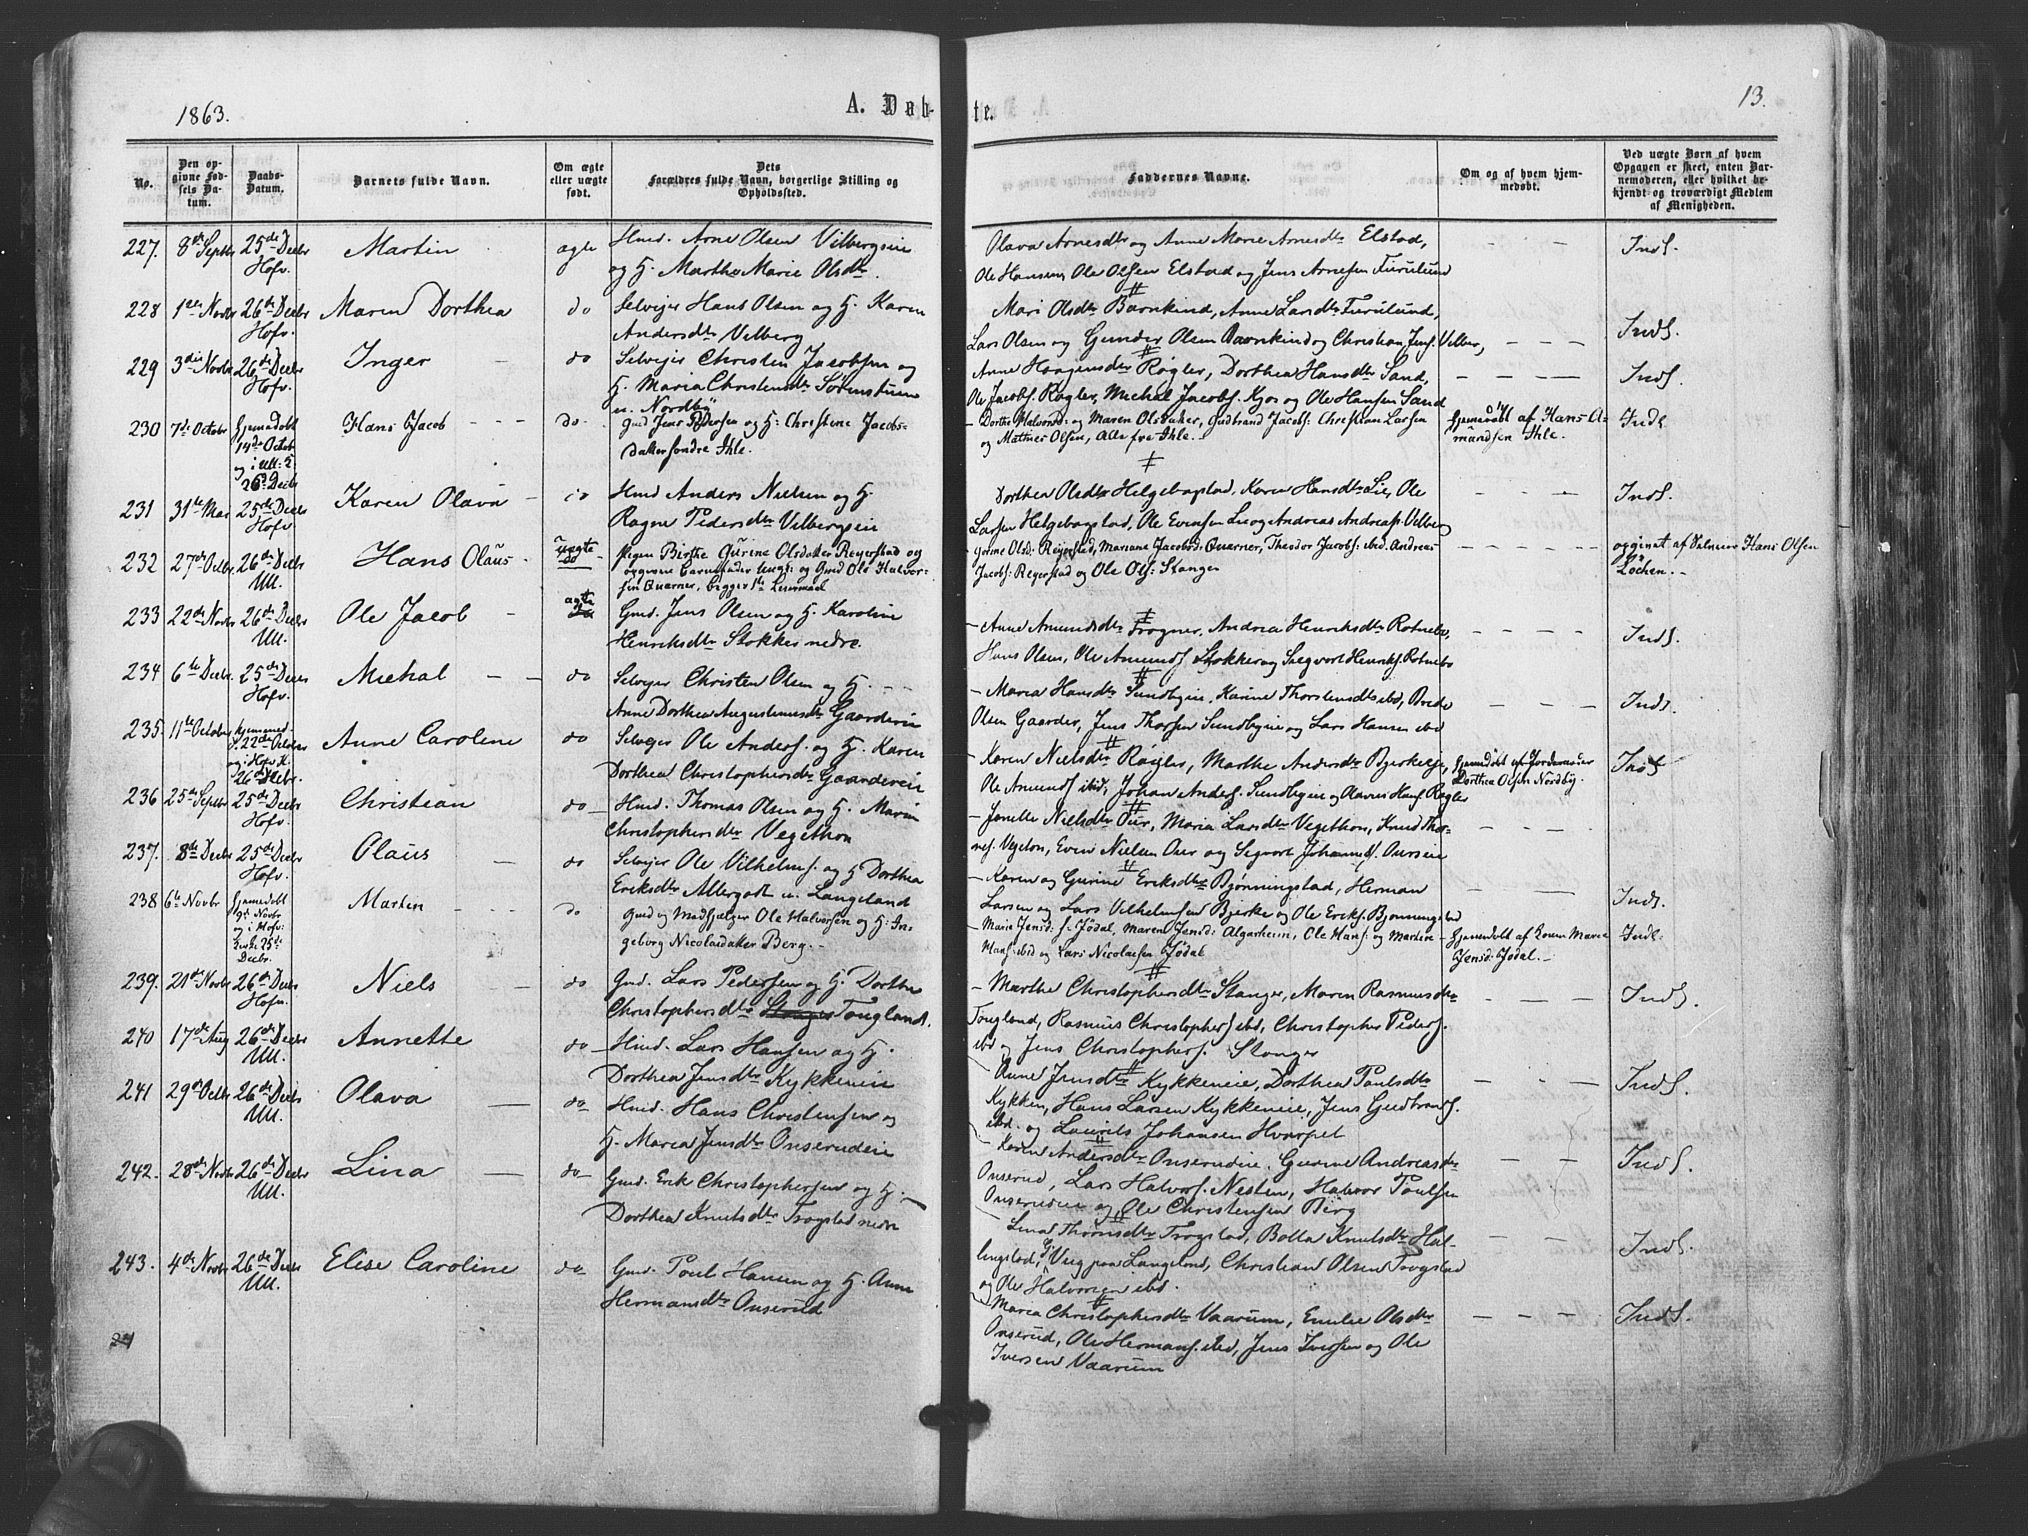 1863.
A. Døb-
te.
13.
No.
Den op-
givne Fød-
sels Da-
tum.
Daabs-
Datum.
Barnets fulde Navn.
Om ægte
eller uægte
født.
Dets
Forældres fulde Navn, borgerlige Stilling og
Opholdssted.
Faddernes Navne.
Om og af hvem hjem-
medøbt.
Ved uægte Børn af hvem
Opgaven er skeet, enten Bar-
nemoderen, eller hvilket be-
kjendt og troværdigt Medlem
af Menigheden.
227. 8de Septbr 25de Decbr Hofv. Martin ægte Huusm. Arne Olsen Vilbergseie
og H. Marthe Marie Olsdtr.
Olava Arnesdtr og Anne Marie Arnesdtr Elstad,
Ole Hansen, Ole Olsen Elstad og Jens Arnesen Furulund
Inds.
228 1ste Novbr 26de Decbr Hofv. Maren Dorthea do Selvejer Hans Olsen og H. Karen
Andersdtr Velberg
Mari Olsdtr Barnkind, Anne Larsdtr Furulund,
Lars Olsen og Gunder Olsen Barnkind og Christian Jens. Velber,
Inds.
229 3die Novbr 26de Decbr Hofv. Inger do Selvejer Christen Jacobsen og
H. Maria Christensdtr Sørumstuen
u. Nordby
Anne Haagensdtr Røgler, Dorthea Hansdtr Sand,
Ole Jacobs. Røgler, Michel Jacobs. Kjos og Ole Hansen Sand
Inds.
230 7de Octobr Hjemmedøbt
14de Octob
og i Ull: K.
26de Decbr
Hans Jacob do Gmd Jens Pedersen og H: Christine Jacobs-
datter søndre Ihle.
Dorthe Halvorsd: og Maren Olsdatter, Gudbrand Jacobs: Christian Larsen
og Mathias Olsen, Alle fra Ihle.
hjemmedøbt af Hans A-
mundsen Ihle.
Inds
231 31te Mai 25de Decbr Hofv. Karen Olava do Huusm Anders Nielsen og H.
Ragne Pedersdtr Vilbergseie
Dorthea Olsdtr Helgebostad, Karen Hansdtr Lie, Ole
Larsen Helgebostad, Ole Evensen Lie og Andreas Andreas. Velberg
Inds.
232 27de Octbr 26de Decbr Ull. Hans Olaus uægte Pigen Birthe Gurine Olsdatter Reyerstad og
opgivne Barnefader Ungk: og Gmd Ole Halvor-
sen Quarner, begges 1ste Leiermaal
Gorine Olsd: Reyerstad, Mariane Jacobsd: Quarner, Theodor Jacobs: ibd, Andreas
Jacobs: Reyerstad og Ole Ols: Stanger
opgivet af Hans Olsen
Løchen.
233 22de Novbr 26de Decbr Ull. Ole Jacob ægte Gmd. Jens Olsen og H. Karoline
Henriksdtr Stokker nedre.
Anne Amundsdtr Frogner, Andrea Henriksdtr Rotnebo,
Hans Olsen, Ole Amunds Stokker og Segvort Henriks. Rotnebo
Inds.
234 6te Decbr. 25de Decbr Hofv. Michal do Selvejer Christen Olsen og H.
Anne Dorthea Augustinusdtr Gaardereie
Maria Hansdtr Sundbyeie, Karine Thorstensdtr ibd, Brede
Olsen Gaarder, Jens Thorsen Sundbyeie og Lars Hansen ibd
Inds.
235. 11te October hjemmed.
22de October
og i Hofv K.
26de Decbr.
Anne Caroline do Selvejer Ole Anders. og H. Karen
Dorthea Christophersdtr Gaardereie
Karen Nielsdtr Røgler, Marthe Andersdtr Bjerkeeje,
Ole Amunds ibid, Johan Anders. Sundbyeie og Olaves Hans. Røgler
hjemmedøbt af Jordemoder
Dorthea Olsen Nordby.
Inds
236 25de Septbr 25de Decbr Hofv. Christian do Huusm. Thomas Olsen og H. Maria
Christophersdtr Vegethon
Janette Nielsdtr Our, Maria Larsdtr Vegethon, Knud Tho-
nes. Vegeton, Even Nielsen Our og Segvort Johannes. Ourseie
237. 8de Decbr 25de Decbr Hofv. Olaus do Selvejer Ole Vilhelms. og H Dorthea
Eriksdtr Allergodt u. Langeland
Karen og Gurine Eriksdtr Bjønningstad, Herman
Larsen og Lars Vilhelmsen Bjerke og Ole Eriks. Bjønningstad
Inds.
238 6te Novbr Hjemmedøbt
9de Novbr
og i Hofv:
Kirke 25de
Decbr.
Marten do Gmd og Madsælger Ole Halvorsen og H: In-
geborg Nicolaidatter Berg.
Marie Jensd: Jødal, Maren Jensd: Algarheim, Ole Hans: og Martin
Hans: ibd og Lars Nicolaisen Jødal
Hjemmedøbt af Karen Marie
Jensd: Jødal.
Inds:
239. 21de Novbr 26de Decbr Hofv. Niels do Gmd. Lars Pedersen og H. Dorthe
Christophersdtr Stanger Tougland.
Marthe Christophersdtr Stanger, Maren Rasmusdtr
Tougland, Rasmus Christophers ibd, Christopher Peders.
ibd og Jens Christophers. Stanger
Inds.
240 17de Aug 26de Decbr Ull. Annette do Huusd. Lars Hansen og H.
Dorthea Jensdtr Kykkeneie
Anne Jensdtr Kykkeneie, Dorthea Paulsdtr
Kykken, Hans Larsen Kykkeneie, Jens Gudbrands.
ibd. og Laurits Johansen Hvarpet
Inds.
241 29de Octbr 26de Decbr Ull. Olava do Huusd. Hans Christensen og
H. Maria Jensdtr Onserudeie
Karen Andersdtr Onserudeie, Gurine Andreasdtr
Onserud, Lars Halvors. Nesten, Halvor Poulsen
Onserudeie og Ole Christensen Berg
Inds.
242. 28de Novbr 26de Decbr Ull. Lina do Gmd. Erik Christophersen og H.
Dorthea Knutsdtr Trogstad nedre
Lina Thronsdtr Trogstad, Bolla Knutsdtr Hal-
lingstad, Vieg paa Langeland, Christian Olsen Trogstad
og Ole Halvorsen ibd.
Inds.
243. 4de Novbr 26de Decbr Ull. Elise Caroline do Gmd. Poul Hansen og H. Anne
Hermansdtr Onserud
Maria Christophersdtr Vaarum, Emilie Olsdtr
Onserud, Ole Hermans. ibd, Jens Iversen og Ole
Iversen Vaarum
Inds.
24